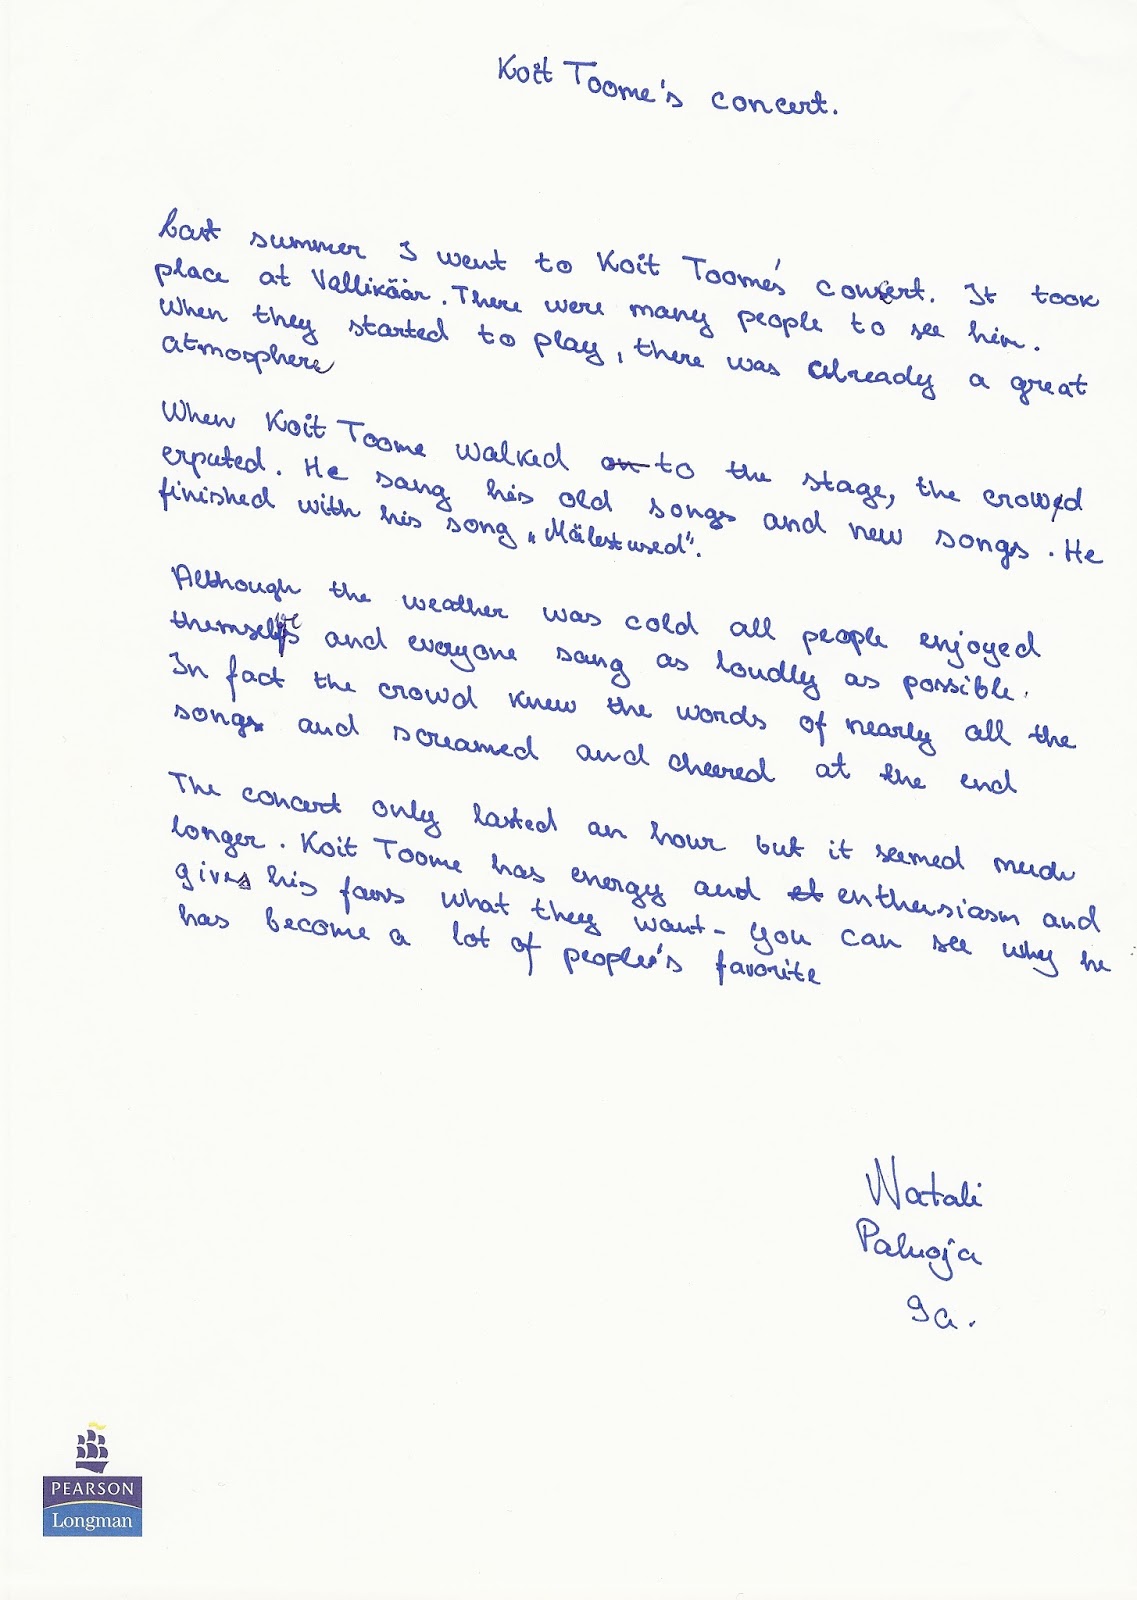 Koit Toome's concert.
Last summer I went to Koit Toome's concert. It took
place at Vallikäär. There were many people to see him.
When they started to play, there was already a great
atmosphere
When Koit Toome walked on to the stage, the crowd
erputed. He sang his old songs and new songs. He
finished with his song „Mälestused".
Although the weather was cold all people enjoyed
themselves and everyone sang as loudly as possible.
In fact the crowd knew the words of nearly all the
songs and screamed and cheered at the end
The concert only lasted an hour but it seemed much
longer. Koit Toome has energy and enthusiasm and
gives his fans what they want - you can see why he
has become a lot of people's favorite
Natali
Paluoja
9a.
PEARSON
Longman